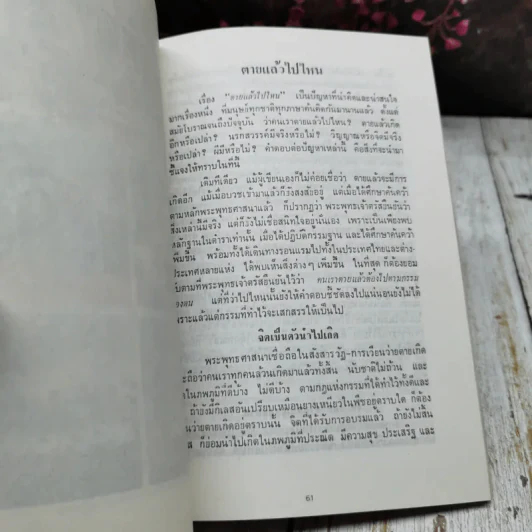 ตายแล้วไปไหน
เรื่อง "ตายแล้วไปไหน" เป็นปัญหาที่น่าคิดและน่าสนใจ
มากเรื่องหนึ่ง ที่มนุษย์ทุกชาติทุกภาษาค้นคิดกันมานานแล้ว ตั้งแต่
สมัยโบราณจนถึงปัจจุบัน ว่าคนเราตายแล้วไปไหน? ตายแล้วเกิด
อีกหรือเปล่า? นรกสวรรค์มีจริงหรือไม่? วิญญาณหรือจิตมีจริง
หรือเปล่า? ผีมีหรือไม่? คำตอบต่อปัญหาเหล่านี้ คือสิ่งที่จะนำมา
ชี้แจงให้ทราบในที่นี้
เดิมทีเดียว แม้ผู้เขียนเองก็ไม่ค่อยเชื่อว่า ตายแล้วจะมีการ
เกิดอีก แม้เมื่อบวชเข้ามาแล้วก็ยังสงสัยอยู่ แต่เมื่อได้ศึกษาค้นคว้า
ตามหลักพระพุทธศาสนาแล้ว ก็ปรากฏว่า พระพุทธเจ้าตรัสยืนยันว่า
สิ่งเหล่านี้มีจริง แต่ก็ยังไม่เชื่อสนิทใจอยู่นั่นเอง เพราะเป็นเพียงพบ
หลักฐานในตำราเท่านั้น เมื่อได้ปฏิบัติกรรมฐาน และได้ศึกษาค้นคว้า
เพิ่มขึ้น พร้อมทั้งได้เดินทางรอนแรมไปทั้งในประเทศไทยและต่าง-
ประเทศหลายแห่ง ได้พบเห็นสิ่งต่างๆ เพิ่มขึ้น ในที่สุด ก็ต้องยอม
รับตามที่พระพุทธเจ้าตรัสยืนยันไว้ว่า คนเราตายแล้วต้องไปตามกรรม
ของตน แต่ที่ว่าไปไหนนั้นยังให้คำตอบชี้ชัดลงไปแน่นอนยังไม่ได้
เพราะแล้วแต่กรรมที่ทำไว้จะเสกสรรให้เป็นไป
จิตเป็นตัวนำไปเกิด
พระพุทธศาสนาเชื่อถือในสังสารวัฏ-การเวียนว่ายตายเกิด
และถือว่าคนเราทุกคนล้วนเกิดมาแล้วทั้งสิ้น นับชาติไม่ถ้วน และ
ในภพภูมิที่ดีบ้าง ไม่ดีบ้าง ตามกฎแห่งกรรมที่ได้ทำไว้ทั้งดีและ
ถ้ายังมีกิเลสอันเปรียบเหมือนยางเหนียวในพืชอยู่ตราบใด ก็ต้อง
ว่ายตายเกิดอยู่ตราบนั้น จิตที่ได้รับการอบรมแล้ว ถ้ายังไม่สิ้น
ส ก็ย่อมนำไปเกิดในภพภูมิที่ประณีต มีความสุข ประเสริฐ และ
61